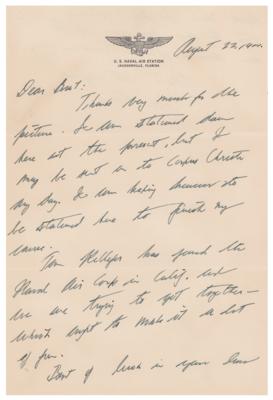 U. S. NAVAL AIR STATION
JACKSONVILLE, FLORIDA
August 22,
Dear
Thanks very much for the
picture. I am stationed down
here at the present, but I
may be sent on to Corpus Christi
any day. I am
be stationed here to finish my
course.
Tom Phillips has joined the
Naval Air Corps in Calif. and
we are trying to get together—
which ought to make it a lot
of fun.
Best of luck in your